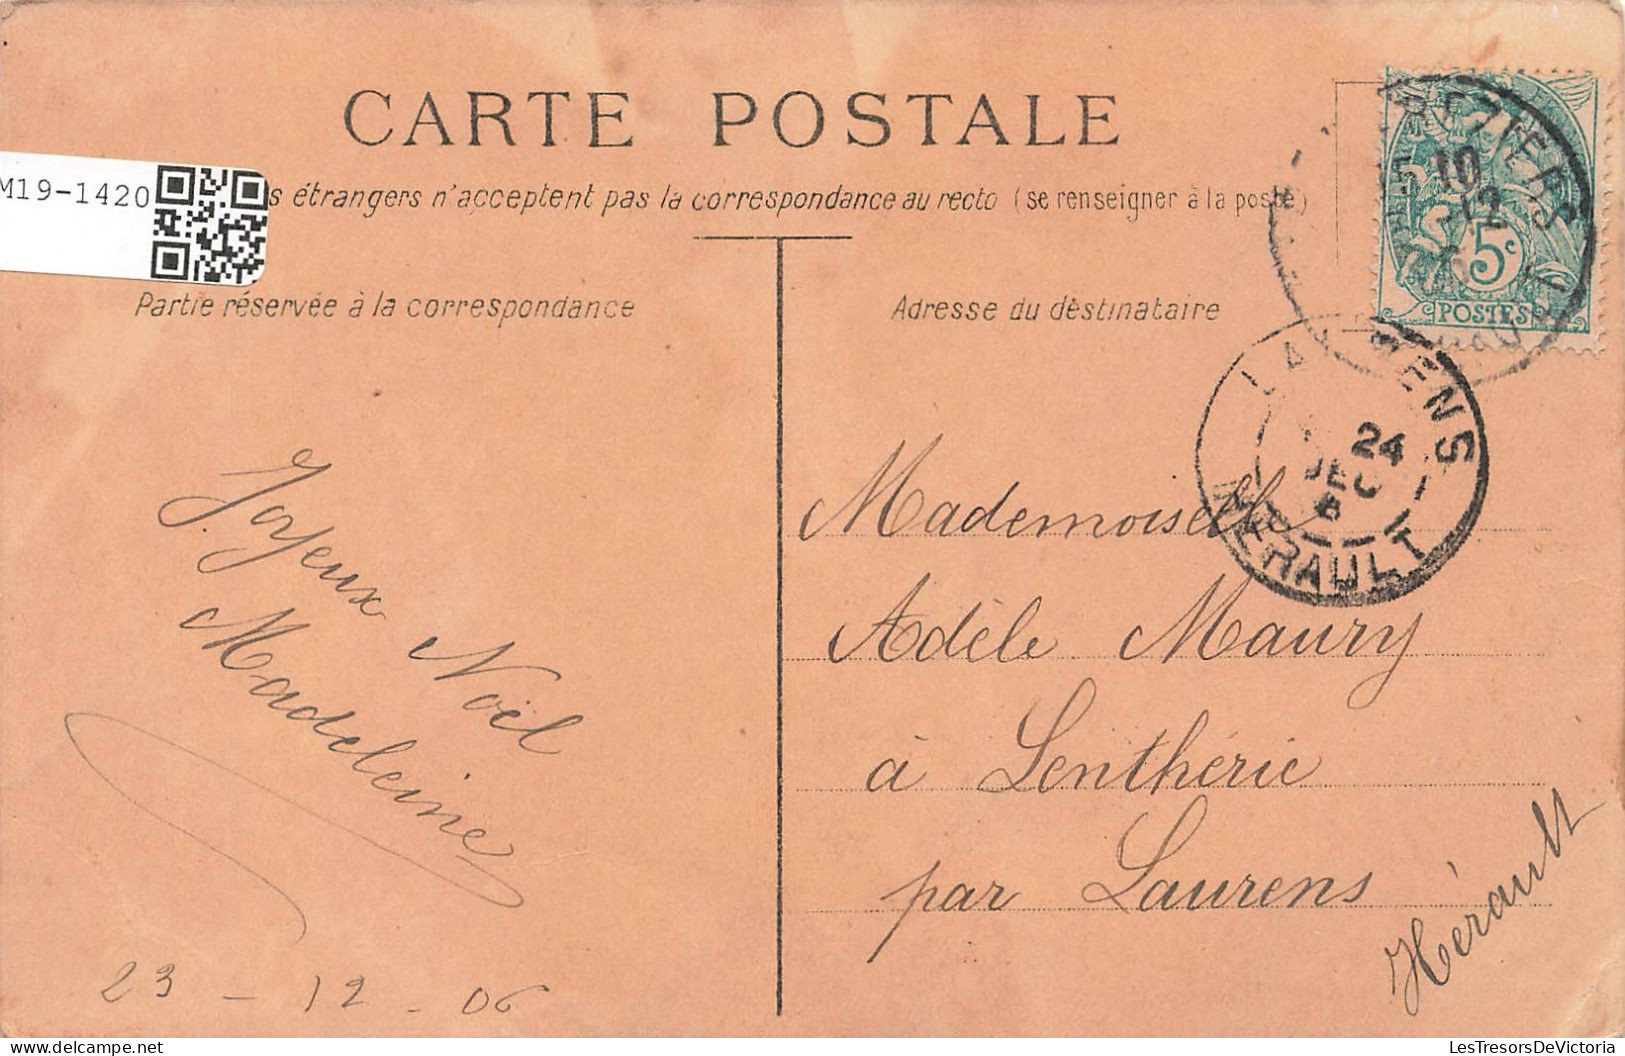 CARTE POSTALE
M19-1420
s étrangers n'acceptent pas la correspondance au recto (se renseigner à la poste)
Partie réservée à la correspondance
Adresse du dèstinataire
5c
POSTES
15 10
12
24
DEC
6
HERAULT
Joyeux Noël
Madeleine
23 - 12 - 06
Mademoiselle
Adèle Maury
à Lenthéric
par Laurens
Hérault
LesTresorsDeVictoria